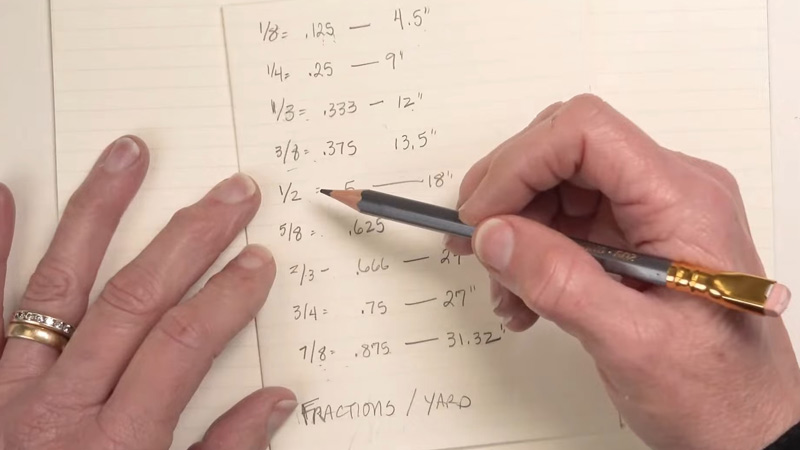 1/8= .125 — 4.5"
1/4= .25 — 9"
1/3= .333 — 12"
3/8= .375 13.5"
1/2 = .5 — 18"
5/8= .625
2/3- .666 —
3/4= .75 — 27"
7/8= .875 — 31.32"
FRACTIONS / YARD